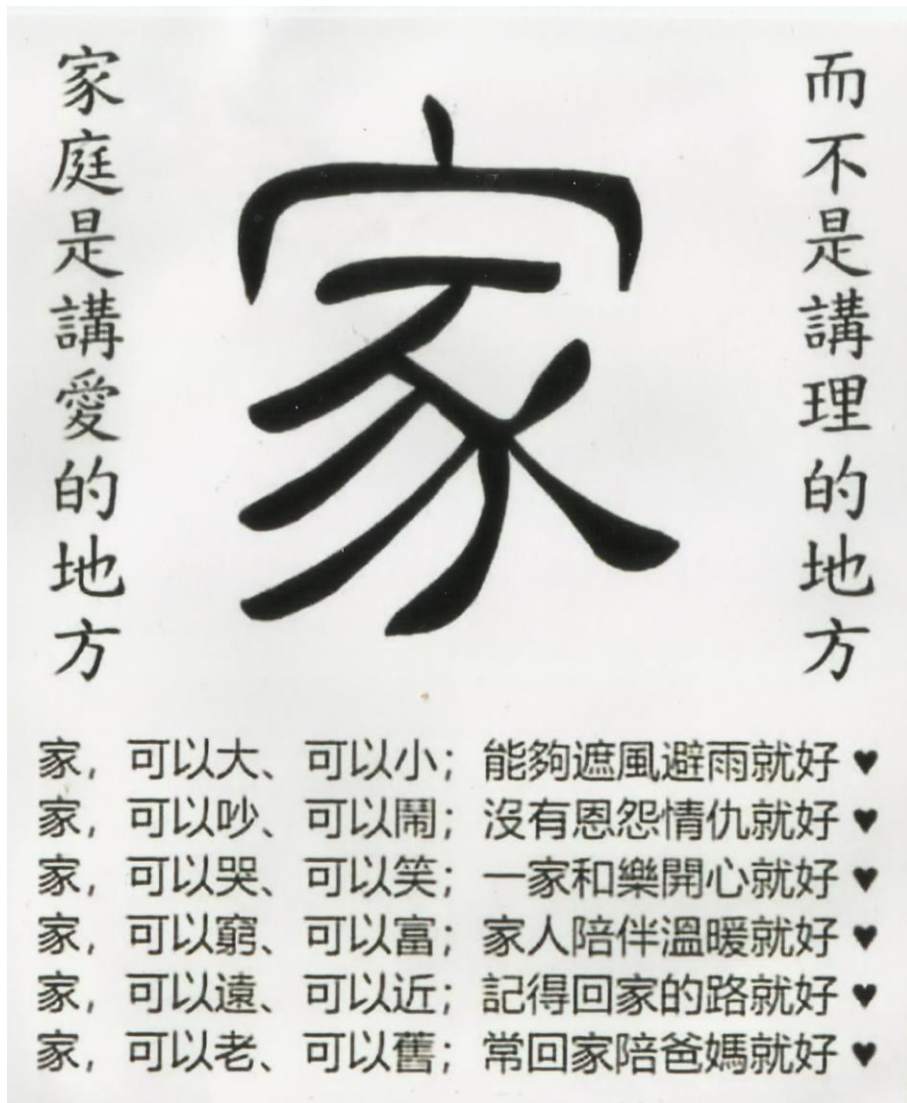 家庭是講愛的地方
家
而不是講理的地方
家，可以大、可以小；能夠遮風避雨就好 ♥
家，可以吵、可以鬧；沒有恩怨情仇就好 ♥
家，可以哭、可以笑；一家和樂開心就好 ♥
家，可以窮、可以富；家人陪伴溫暖就好 ♥
家，可以遠、可以近；記得回家的路就好 ♥
家，可以老、可以舊；常回家陪爸媽就好 ♥